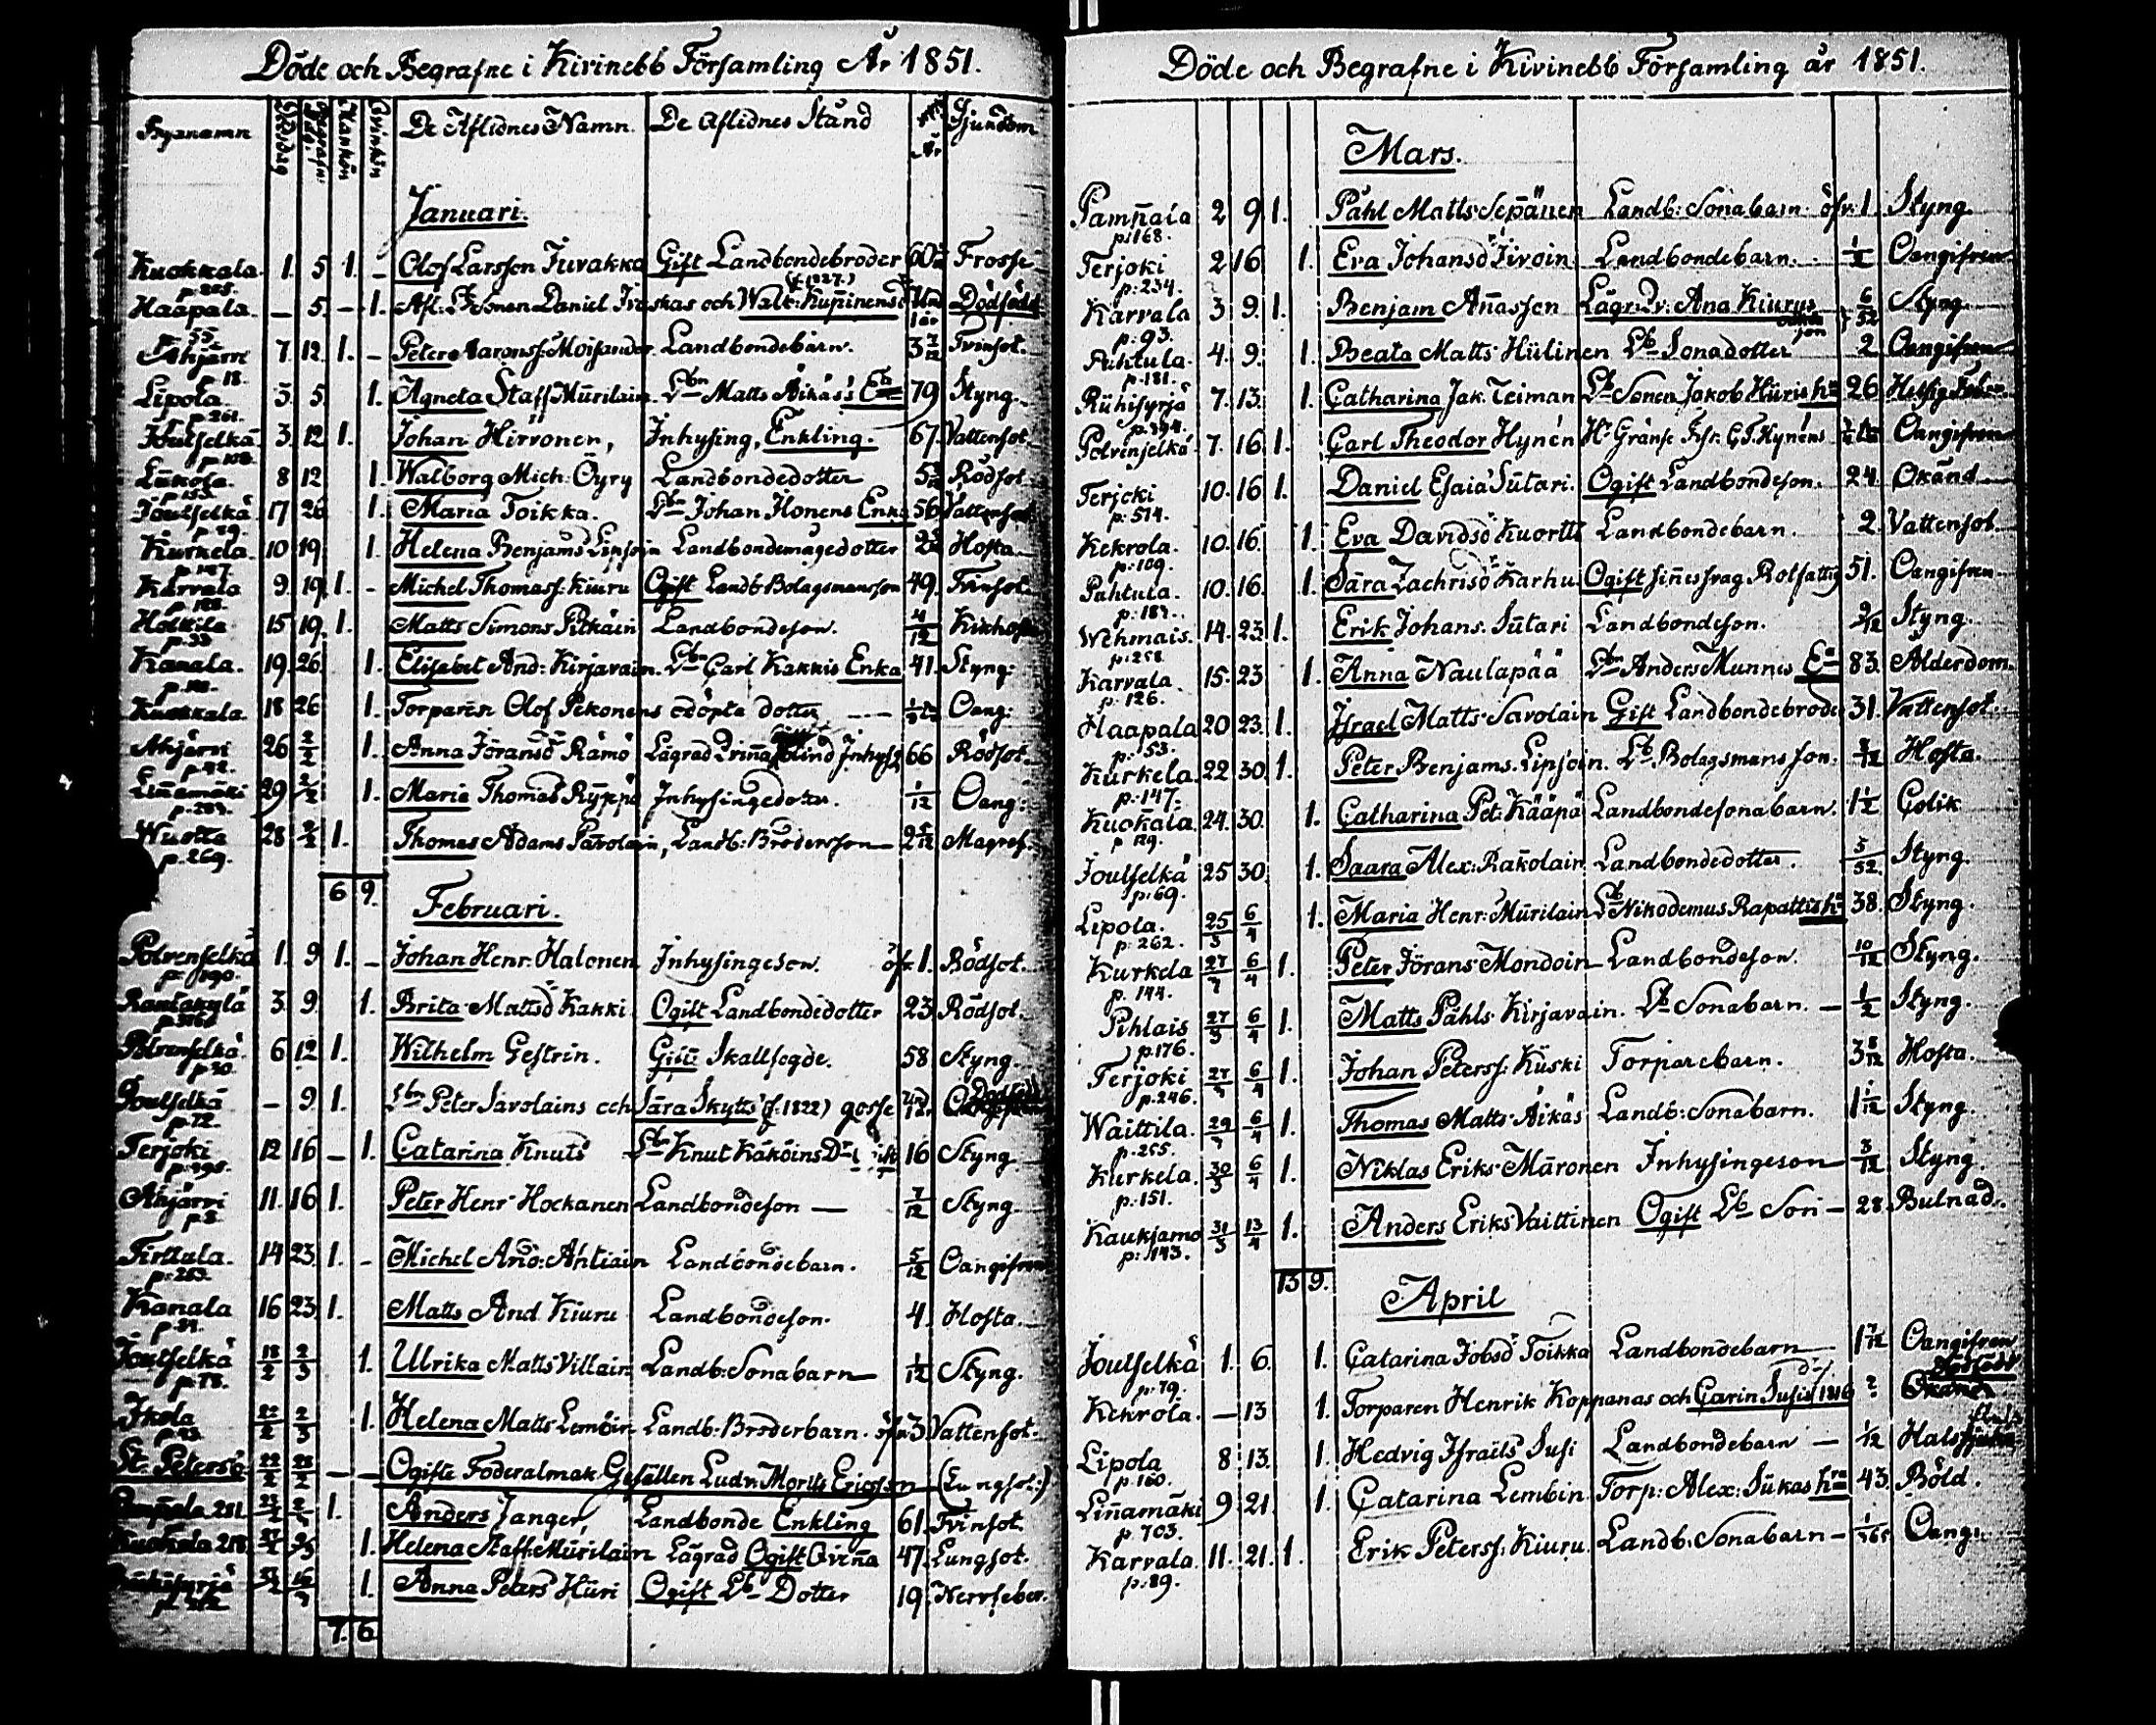 Döde och Begrafne i Kivinebb Församling År 1851.
Bynamn De Aflidnes Namn. De aflidnes Stånd År Sjundom
Januari.
Kuokkala. 1. 5 1. – Olof Larsson Juvakka Gift Landbondebroder 60 Frosse
Haapala. — 5. – 1. Afl. Lb Sonen Daniel och Walb. Kupinens Dödfödd
(f. 1827.)
p. 55.
Ahjärvi 7. 12. 1. – Peter Aaronss. Moisander Landbondebarn. 3 Tvinsot.
p. 18.
Lipola. 3. 5. 1. Agneta Staff. Mürilain. Lbn Matts Äikäs's 79 Styng.
p. 261.
Joutselkä 3. 12 1. Johan Hirvonen, Inhysing, Enkling. 67. Vattensot.
p. 108.
8 12 1. Walborg Mich. Öyry Landbondedotter 5 Rödsot.
Joutselkä 17 26 1. Maria Toikka. Lbn Johan Honens Enka 56 Vattensot
p. 89.
Kurkela. 10 19. 1. Helena Benjamsd Lipsoin Landbondemågedotter 2 Hosta.
p. 147.
Karvala 9. 19. 1. – Michel Thomass. Kiuru Ogift Landb. Bolagsmansson 49. Tvinsot.
Hottila 15 19. 1. Matts Simons Pitkäin Landbondeson. 4/12 Kikhosta
p. 33
Kanala. 19. 26. 1. Elisabet And: Kirjavain. Lbn Carl Kakkis Enka 41. Styng:
Kuokkala. 18 26 1. Torparen Olof Pekonens odöpta dotter — Oang:
Ahjärvi 26 2/2 1. Anna Göransd Rämö Lägrad Qvinna Blind Inhys: 66 Rödsot.
p. 42.
Linnamäki 29 2/2 1. Maria Thomasd Ryppä Inhysingedotter. 1/12 Oang:
Wuotta 28 2/2 1. Thomas Adams Pavolain, Landb: Brodersson — 2 Magref.
p. 269.
6 9.
Februari.
Polvenselkä 1. 9 1. – Johan Henr: Halonen Inhysingeson. öfv. 1. Rödsot.
p. 190.
Rantakylä 3. 9. 1. Brita Mattsd Kakki Ogift Landbondedotter 23. Rödsot.
Polvenselkä. 6 12 1. Wilhelm Gestrin. Gift Skallfogde. 58 Styng.
p. 30.
Joutselkä – 9. 1. Lbn Peter Savolains och Sara Skytts (f. 1822) gosse Dödfödd
p. 72.
Terjoki 12 16 – 1. Catarina Knuts Lbn Knut Käköins Dr 16 Styng
Ahjärvi 11. 16 1. Peter Henr Hockanen Landbondeson — 7/12 Styng.
p. 8.
Tirttala. 14 23. 1. – Michel And: Ahtiain Landbondebarn. 5/12 Oangifven
p: 263.
Kanala 16 23. 1. Matts And Kiuru Landbondeson. 4. Hosta.
Joutselkä 18/2 2/3 1. Ulrika Matts Villain Landb: Sonabarn — 1/12 Styng.
p. 78.
Ikola 22/2 2/3 1. Helena Matts Lemöin Landb: Broderbarn. öfv. 3. Vattensot.
p. 93.
St. Petersb. 22/2 28/2 — — Ogifte Foderalmak. Gesällen Ludv. Morits Ericsson (Lungsot:)
1. Anders Janger, Landbonde Enkling 61. Tvinsot.
1. Helena Staff: Mürilain Lägrad Ogift Qvinna 47. Lungsot.
1. Anna Peters Hüri Ogift Lb Dotter 19. Nervfeber.
7. 6.
Döde och Begrafne i Kivinebb Församling år 1851.
Mars.
Pamppala 2 9 1. Påhl Matts Sepänen Landb: Sonabarn. öfv. 1 Styng.
p: 168.
Terjoki 2 16 1. Eva Johansd Tivoin Landbondebarn. 1/2 Oangifven
p: 234.
Karvala 3. 9. 1. Benjam Annasson Lägr. Qv: Ana Kiurus 6/52 Styng.
p. 93.
Pihtula. 4. 9. 1. Beata Matts Hülinen Lb Sonadotter 2. Oangifven
p. 181.
7. 13. 1. Catharina Jak. Teiman Lb Sonen Jakob Hüris ha 26
Polvenselkä 7. 16. 1. Carl Theodor Hynén Hr Gräns Insp. G. T. Hynéns Oangifven
Terjoki 10. 16 1. Daniel Esaia Sutari. Ogift Landbondeson. 24. Okänd
p: 514.
Kekrola. 10. 16. 1. Eva Davidsd Kuortti Landbondebarn. 2. Vattensot.
p: 109.
Pahtula. 10. 16. 1. Sara Zachrisd Karhu Ogift sinnessvag Rotfattig 51. Oangifven
p: 184.
Wehmais. 14. 23 1. Erik Johans. Sutari Landbondeson. 9/12 Styng.
p: 258
Karvala 15. 23 1. Anna Naulapää Lbn Anders Munnes Ea 83. Ålderdom.
p: 126.
Haapala 20 23. 1. Israel Matts Savolain Gift Landbondebroder 31. Vattensot.
p: 53.
Kurkela. 22 30. 1. Peter Benjams. Lipsoin. Lb. Bolagsmans son. Hosta.
p: 147.
Kuokala 24. 30. 1. Catharina Pet: Kääpä Landbondesonabarn. 1½ Colik
p 129.
Joutselkä 25 30. 1. Saara Alex: Rakolain Landbondedotter. 5/52. Styng.
p: 69.
Lipola. 25/3 6/4 1. Maria Henr: Mürilain Lb Nikodemus Rapattis ha 38. Styng.
p: 262.
Kurkela 27/3 6/4 1. Peter Görans Mondoin Landbondeson. 10/12 Styng.
p. 144.
Pihlais 27/3 6/4 1. Matts Påhls Kirjavain. Lb Sonabarn. — 1/2 Styng.
p. 176.
Terjoki 27/3 6/4 1. Johan Peterss: Küski Torparebarn. 3 8/12 Hosta.
p. 246.
Waittila. 29/3 6/4 1. Thomas Matts Äikäs Landb: Sonabarn. 1 1/12 Styng.
p. 255.
Kurkela. 30/3 6/4 1. Niklas Eriks Maronen Inhysingeson — 3/12 Styng.
p: 151.
Kaukjamo 31/3 13/4 1. Anders Eriks Vaittinen Ogift Lb Son – 28. Bulnad.
p: 143.
13 9.
April
Joutselkä 1. 6. 1. Catarina Jobsd Toikka Landbondebarn — 1 7/12 Oangifven
p: 79.
Dödfödt
Kekrola. — 13 1. Torparen Henrik Koppanas och Carin Susis 1816 ?
Lipola 8 13. 1. Hedvig Israels Susi Landbondebarn — 1/12
p. 160.
Linnamäki 9. 21. 1. Catarina Lembin Torp: Alex: Sükas hra 43. Böld.
p. 703.
Karvala. 11. 21. 1. Erik Peterss: Kiuru. Landb: Sonabarn — 1/365 Oang:
p: 89.